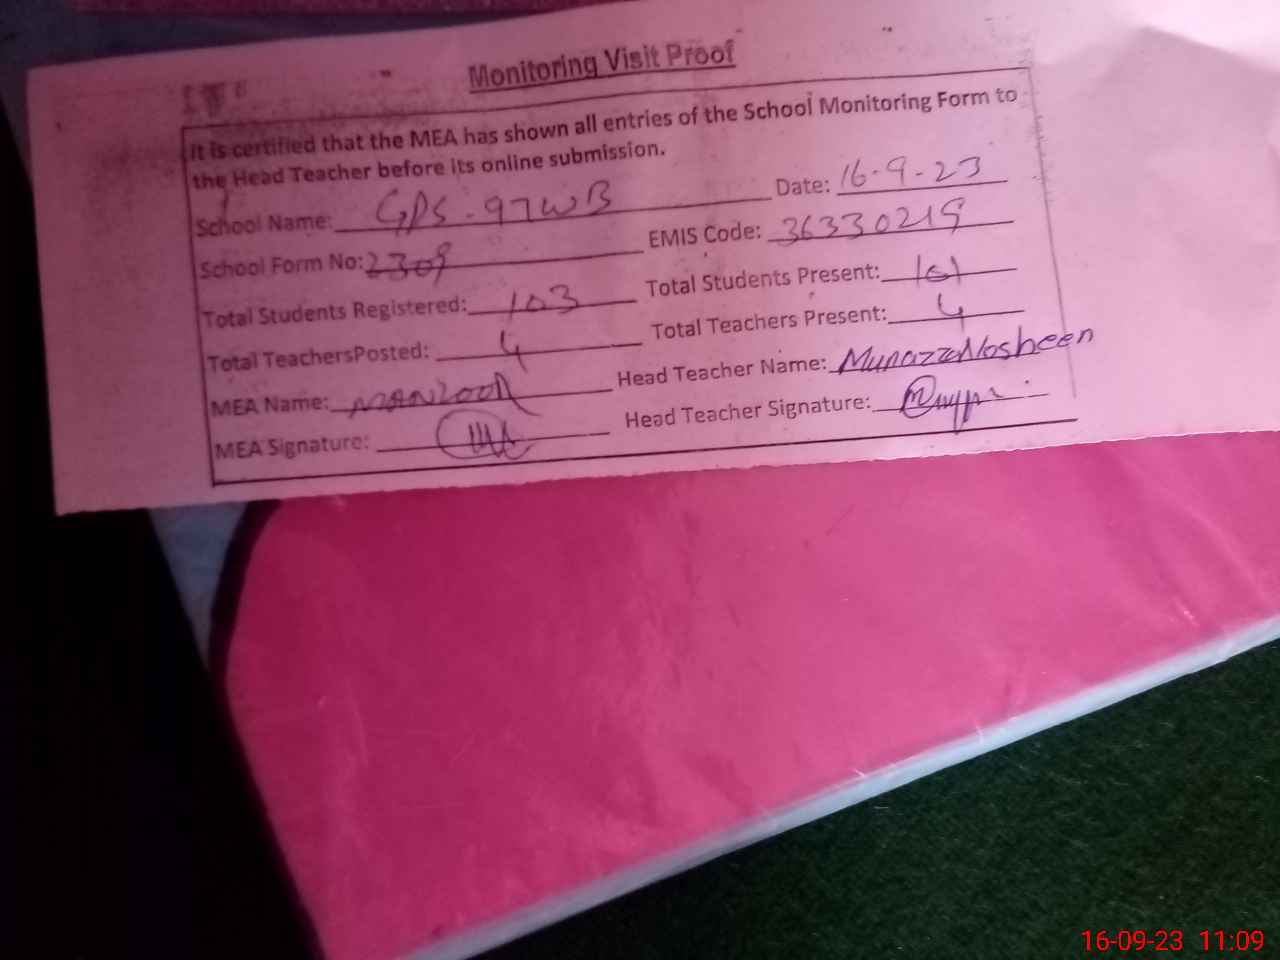 Monitoring Visit Proof
It is certified that the MEA has shown all entries of the School Monitoring Form to
the Head Teacher before its online submission.
School Name: GPS-97WB Date: 16-9-23
School Form No: 2309 EMIS Code: 36330219
Total Students Registered: 103 Total Students Present: 101
Total TeachersPosted: 4 Total Teachers Present: 4
MEA Name: MANZOOR Head Teacher Name: Munazza Nosheen
MEA Signature: Head Teacher Signature:
16-09-23 11:09